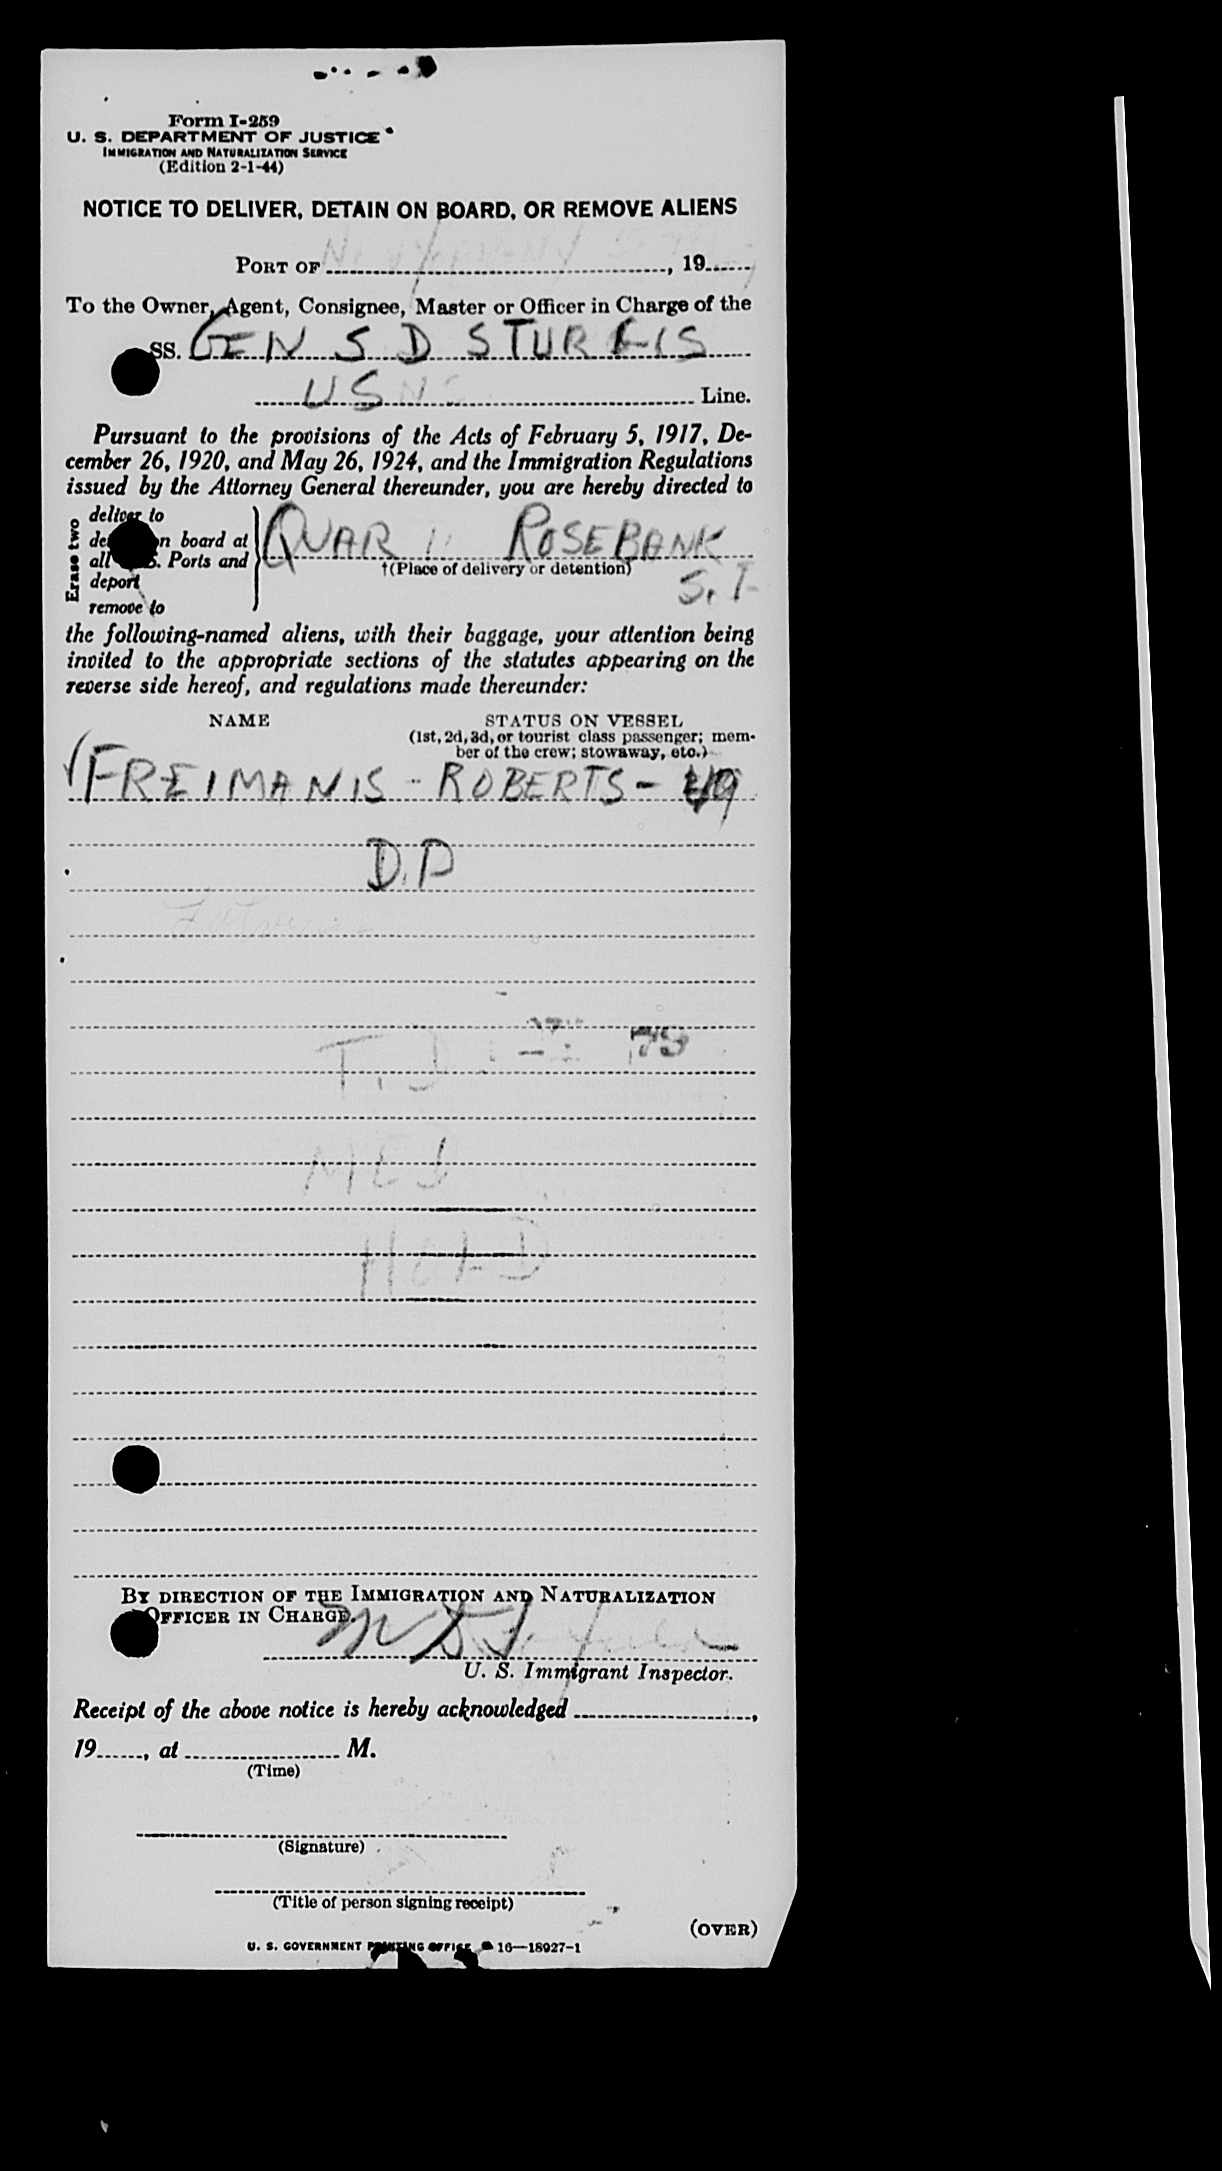 Form I-259
U. S. DEPARTMENT OF JUSTICE
IMMIGRATION AND NATURALIZATION SERVICE
(Edition 2-1-44)
NOTICE TO DELIVER, DETAIN ON BOARD, OR REMOVE ALIENS
PORT OF , 19
To the Owner, Agent, Consignee, Master or Officer in Charge of the
SS. GEN S D STURGIS
US Line.
Pursuant to the provisions of the Acts of February 5, 1917, De-
cember 26, 1920, and May 26, 1924, and the Immigration Regulations
issued by the Attorney General thereunder, you are hereby directed to
Erase two
deliver to
on board at
all Ports and
deport
remove to
QUAR ROSEBANK
†(Place of delivery or detention)
S. I.
the following-named aliens, with their baggage, your attention being
invited to the appropriate sections of the statutes appearing on the
reverse side hereof, and regulations made thereunder:
NAME STATUS ON VESSEL
(1st, 2d, 3d, or tourist class passenger; mem-
ber of the crew; stowaway, etc.)
FREIMANIS - ROBERTS -
D.P
T.D
MED
HOLD
BY DIRECTION OF THE IMMIGRATION AND NATURALIZATION
OFFICER IN CHARGE
U. S. Immigrant Inspector.
Receipt of the above notice is hereby acknowledged ,
19 , at M.
(Time)
(Signature)
(Title of person signing receipt)
(OVER)
U. S. GOVERNMENT PRINTING OFFICE 16—18927-1